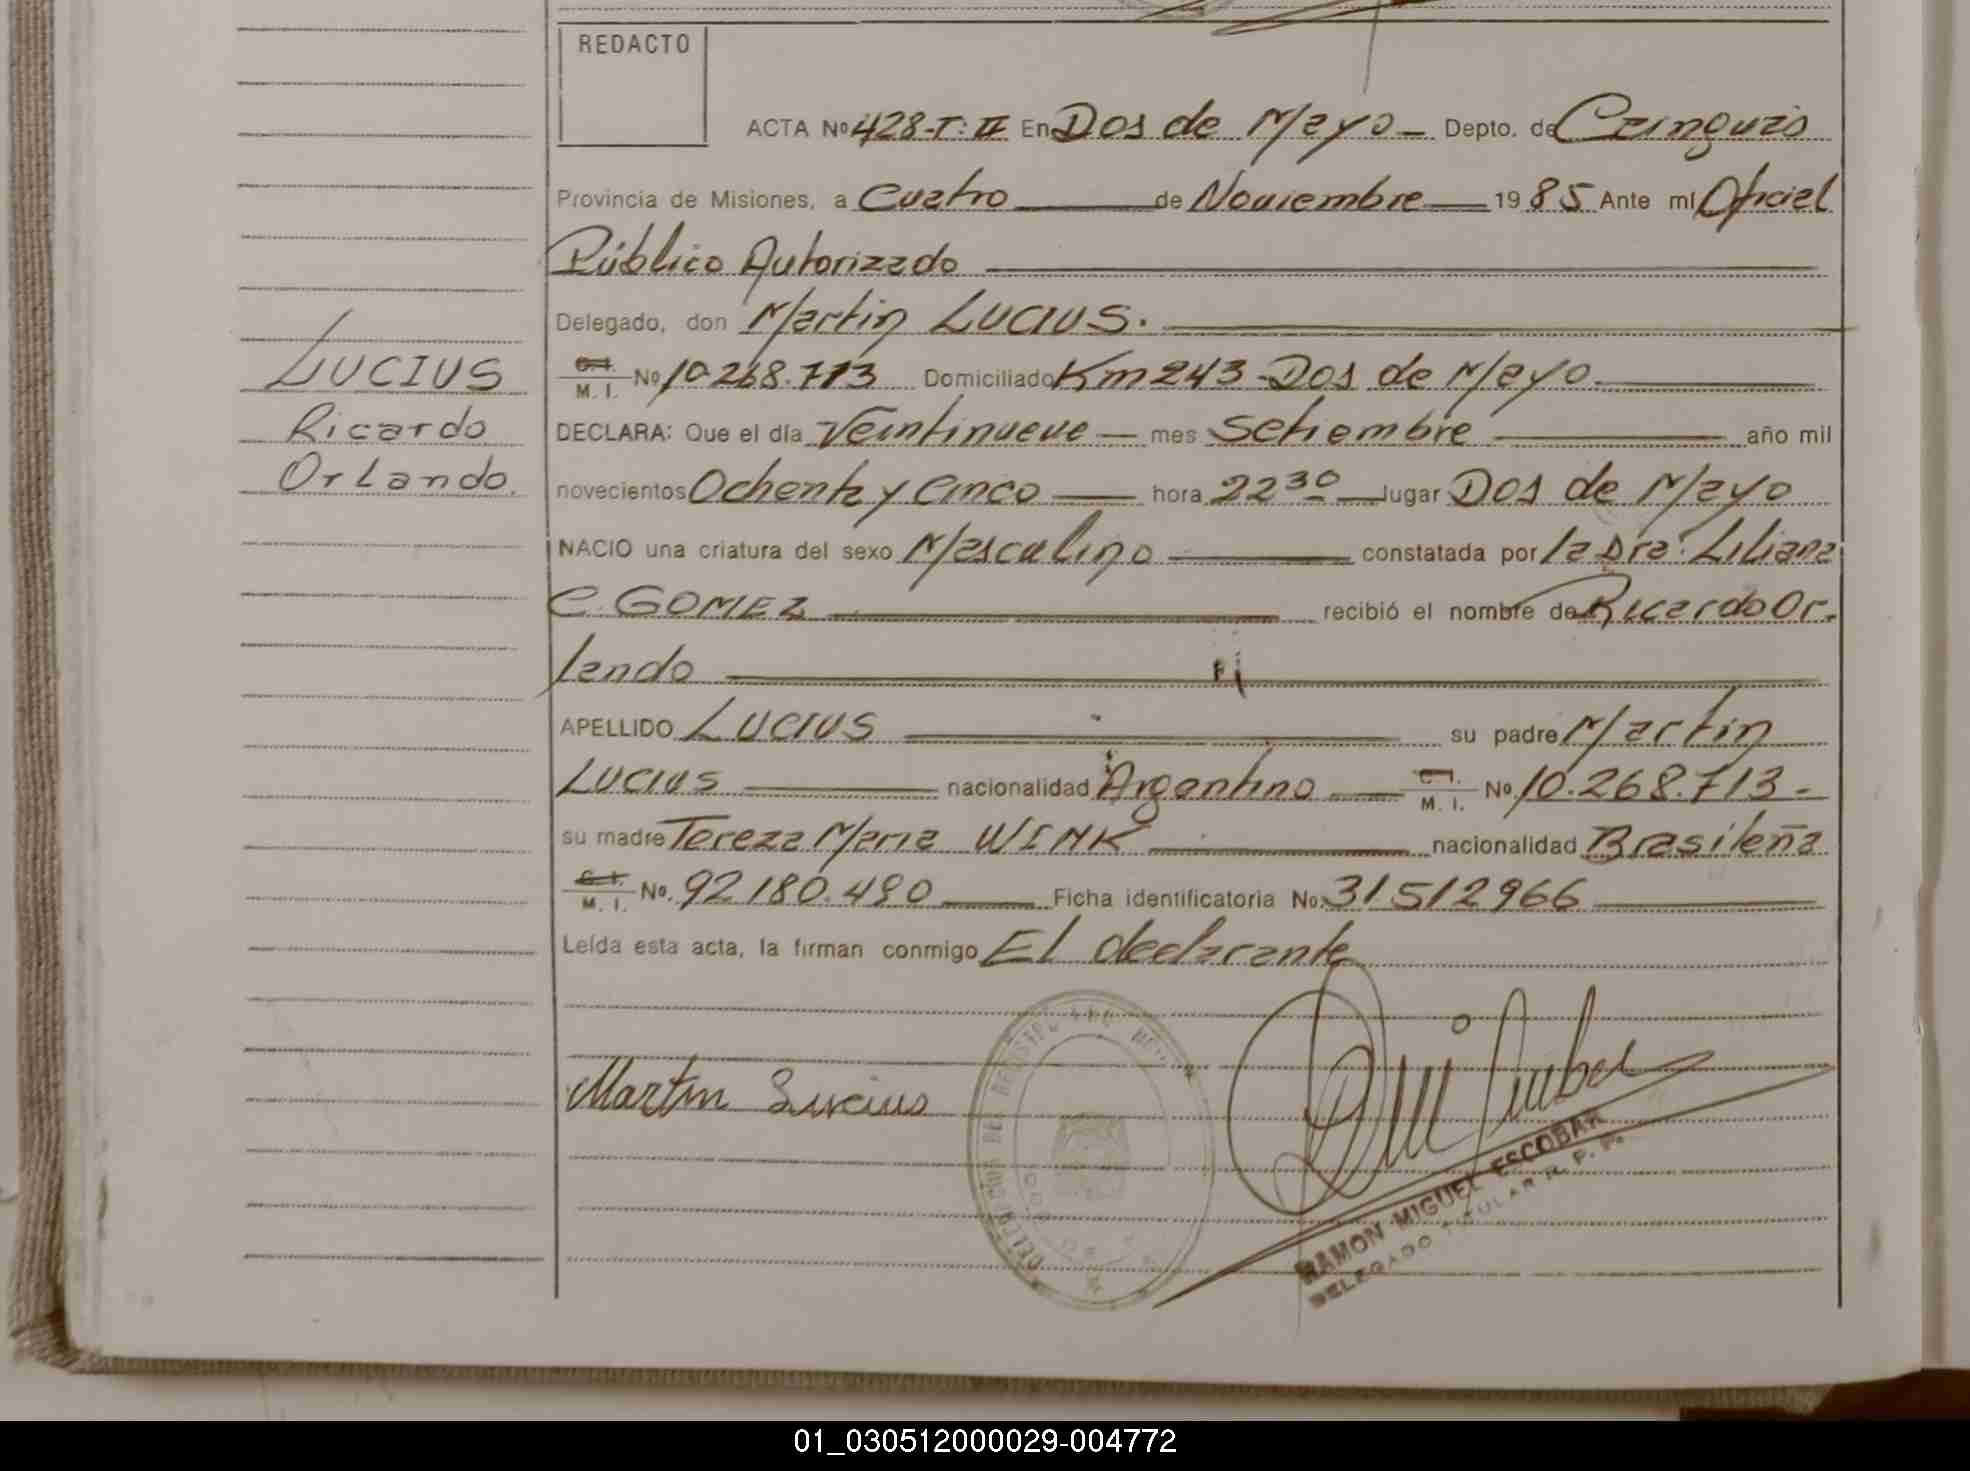 REDACTO
ACTA Nº 428-T: II En Dos de Mayo Depto. de Cainguás
Provincia de Misiones, a Cuatro de Noviembre 1985 Ante mí Oficial
Público Autorizado
Delegado, don Martin LUCIUS.
C.I. M. I. Nº 10.268.713 Domiciliado Km 243 - Dos de Mayo
LUCIUS
Ricardo
Orlando.
DECLARA: Que el día Veintinueve mes Setiembre año mil
novecientos Ochenta y Cinco hora 22 30 lugar Dos de Mayo
NACIO una criatura del sexo Masculino constatada por la Dra. Liliana
C. GOMEZ recibió el nombre de Ricardo Or-
lando
APELLIDO LUCIUS su padre Martin
LUCIUS nacionalidad Argentino C.I. M. I. Nº 10.268.713.-
su madre Tereza Maria WINK nacionalidad Brasileña
C.I. M. I. Nº. 92.180.490 Ficha identificatoria No. 31512966
Leída esta acta, la firman conmigo El declarante
Martin Lucius
DELEGACION DEL REGISTRO
RAMON MIGUEL ESCOBAR
DELEGADO TITULAR R. P. P.
01_030512000029-004772